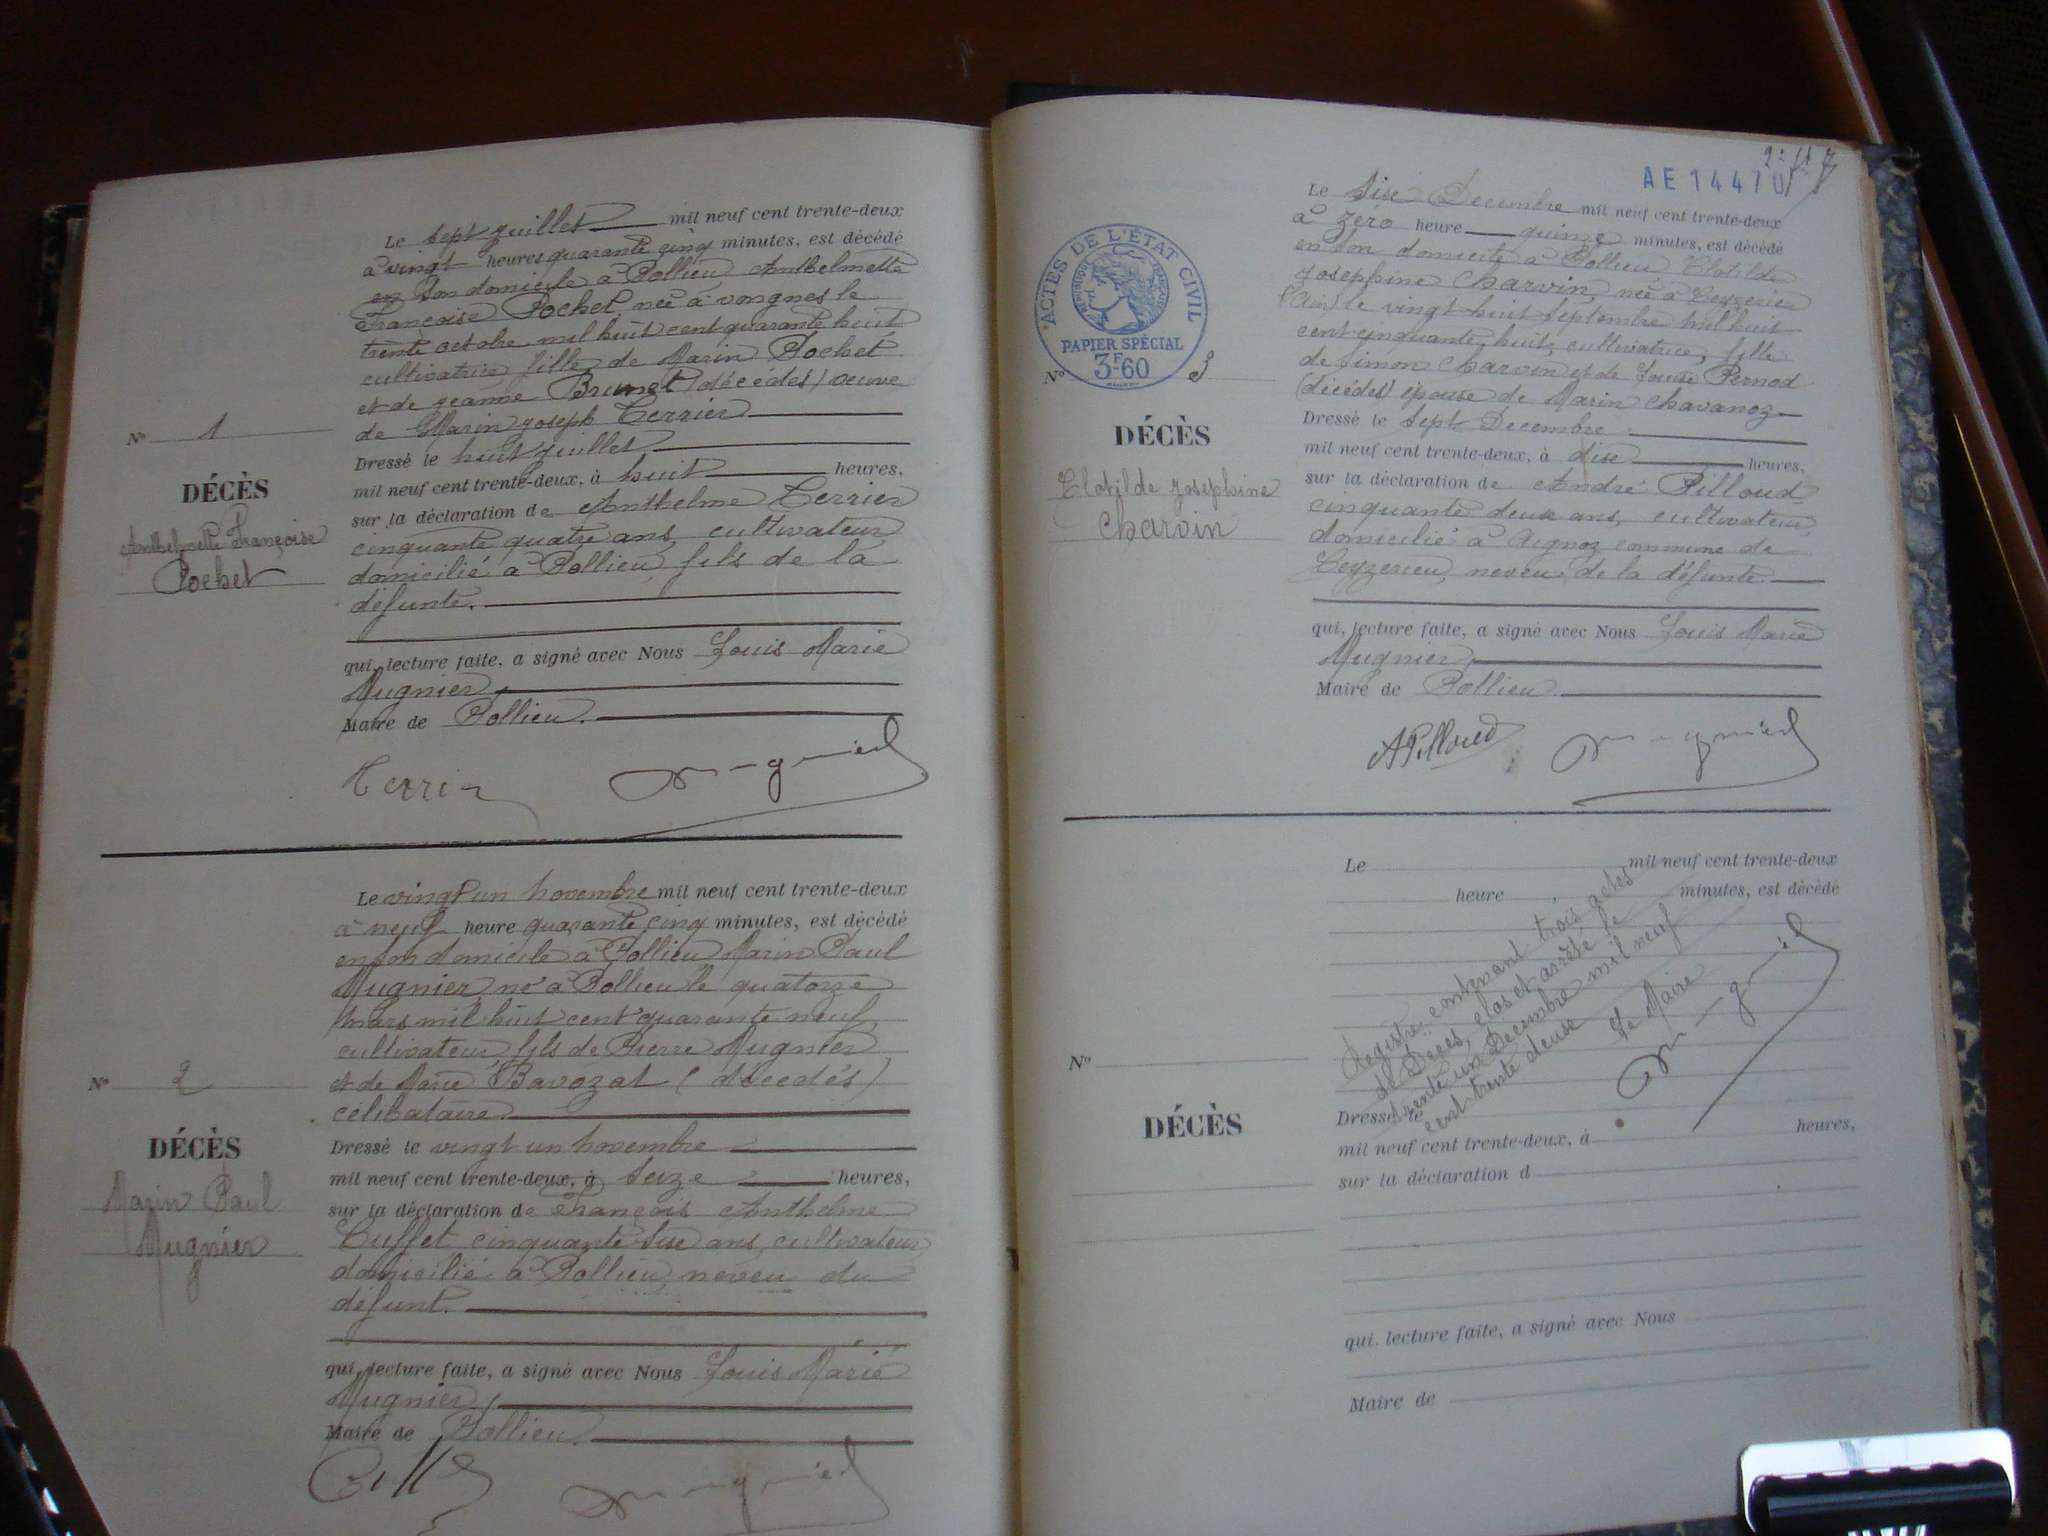 Le sept juillet mil neuf cent trente-deux
à vingt heures quarante cinq minutes, est décédé
en son domicile à Pollieu Anthelmette
Françoise Pochet, née à vongnes le
trente octobre mil huit cent quarante huit
cultivatrice fille de Marin Pochet
et de jeanne Brunet (décédés) veuve
de Marin joseph Terrier
Nº 1
DÉCÈS
Anthelmette Françoise
Pochet
Dressé le huit juillet
mil neuf cent trente-deux, à huit heures,
sur la déclaration de Anthelme Terrier
cinquante quatre ans, cultivateur
domicilié à Pollieu, fils de la
défunte.
qui, lecture faite, a signé avec Nous Louis Marie
Mugnier
Maire de Pollieu.
Terrier
Mugnier
Le vingt un novembre mil neuf cent trente-deux
à neuf heure quarante cinq minutes, est décédé
en son domicile à Pollieu Marin Paul
Mugnier, né à Pollieu le quatorze
mars mil huit cent quarante neuf,
cultivateur, fils de Pierre Mugnier
et de Marie Bavozat (décédés)
célibataire.
Nº 2
DÉCÈS
Marin Paul
Mugnier
Dressé le vingt un novembre
mil neuf cent trente-deux, à seize heures,
sur la déclaration de François Anthelme
Cuffet cinquante sise ans, cultivateur
domicilié à Pollieu, neveu du
défunt.
qui, lecture faite, a signé avec Nous Louis Marie
Mugnier,
Maire de Pollieu.
Mugnier
AE 14470
ACTES DE L'ÉTAT CIVIL
RÉPUBLIQUE FRANÇAISE
PAPIER SPÉCIAL
3F60
Le sise Decembre mil neuf cent trente-deux
à zero heure quinze minutes, est décédé
en son domicile à Pollieu Clotilde
josephine Charvin, née à Ceyzerieu
(Ain) le vingt huit septembre mil huit
cent cinquante huit, cultivatrice, fille
de Simon Charvin et de Louise Pernod
(décédés) épouse de Marin Chavanoz
Nº 3
DÉCÈS
Clotilde josephine
Charvin
Dressé le sept Decembre
mil neuf cent trente-deux, à dise heures,
sur la déclaration de André Pilloud
cinquante deux ans, cultivateur,
domicilié à Aignoz commune de
Ceyzerieu, neveu de la défunte.
qui, lecture faite, a signé avec Nous Louis Marie
Mugnier,
Maire de Pollieu
APilloud
Mugnier
Le mil neuf cent trente-deux
heure minutes, est décédé
Registre contenant trois actes
de Décès, clos et arrêté le
trente un Decembre mil neuf
cent trente deuse
Le Maire
Mugnier
Nº
DÉCÈS
Dressé le
mil neuf cent trente-deux, à heures,
sur la déclaration d
qui, lecture faite, a signé avec Nous
Maire de